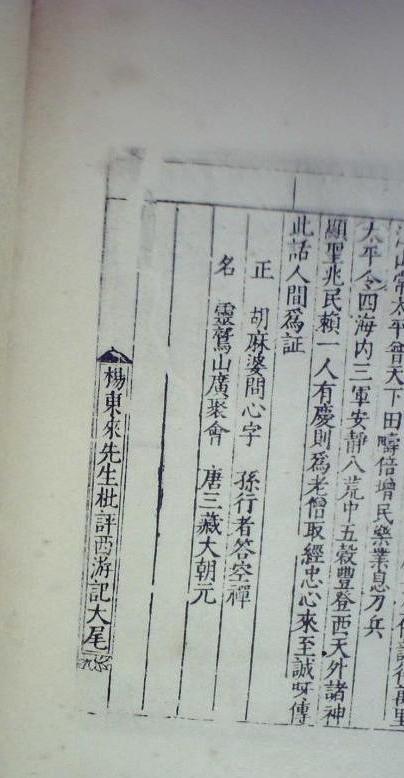 常太平曾天下田疇倍增民樂業息刀兵
太平令四海內三軍安靜八荒中五穀豐登西天外諸神
顯聖兆民賴一人有慶則爲老僧取經忠心來至誠呀傳
此話人間爲証
正　胡麻婆問心字　孫行者答空禪
名　靈鷲山廣聚會　唐三藏大朝元
楊東來先生批評西游記大尾